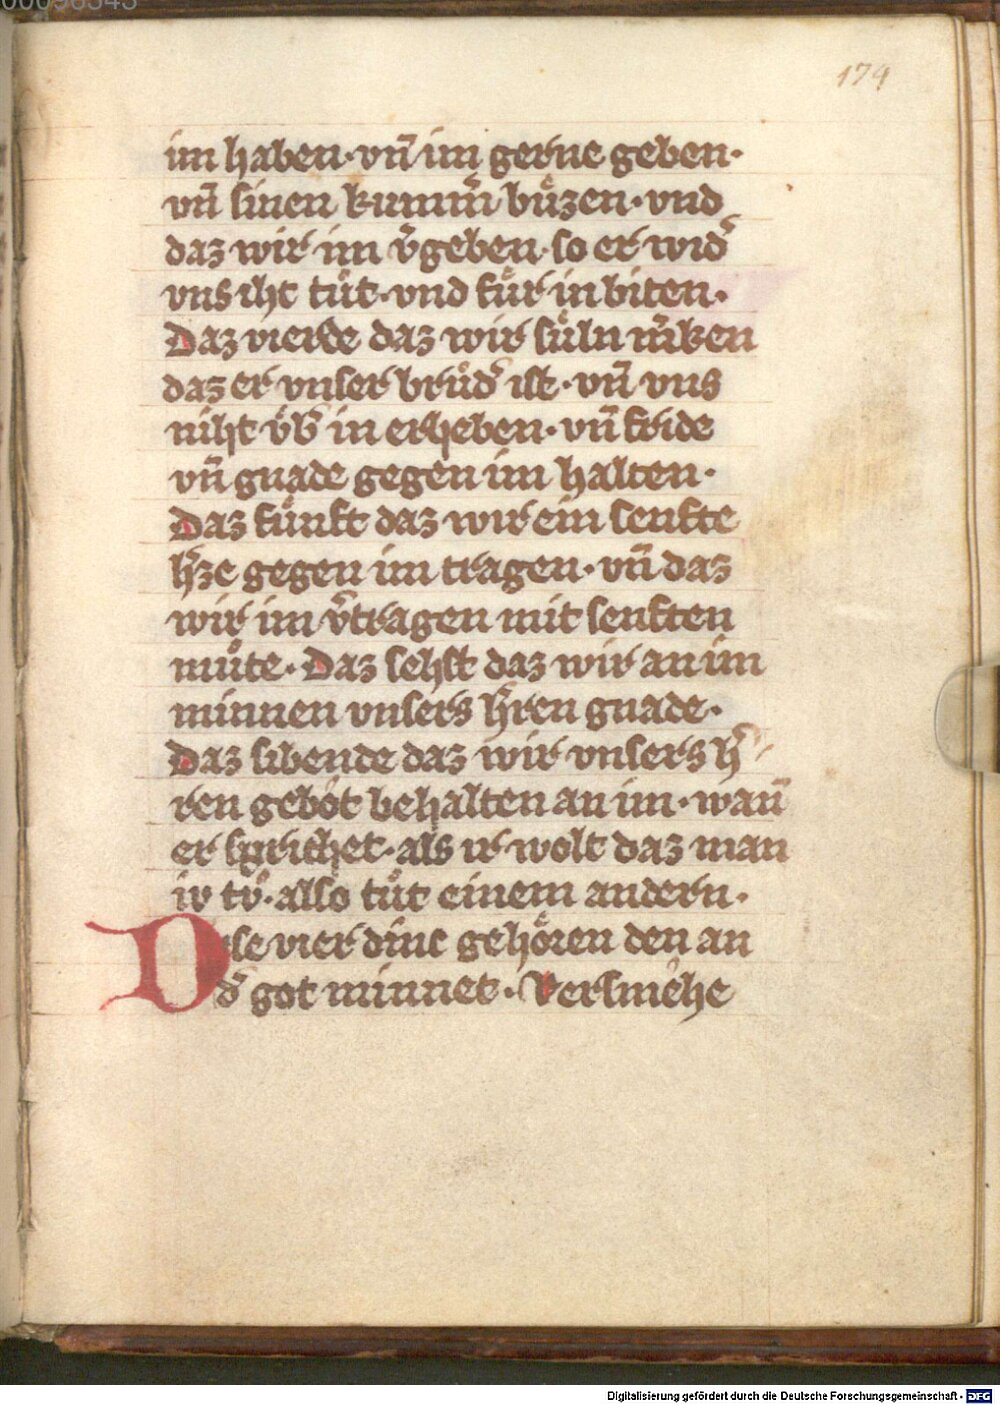 174
im haben·vn̄ im gerne geben·
vn̄ sinen kumm̄ bůzen·vnd
daz wir im v̄geben·so er wid̄
vns iht tůt·vnd fůr in biten·
Daz vierde daz wir sůln m̄ken
daz er vnser brůd̄ ist·vn̄ vns
niht v̊b̄ in erheben·vn̄ fride
vn̄ gnade gegen im halten·
Daz fůnft daz wir ein senfte
h̄ze gegen im tragen·vn̄ daz
wir im v̄tragen mit senften
můte·Daz sehst daz wir an im
minnen vnsers h̄ren gnade·
Daz sibende daz wir vnsers h̄
ren gebot behalten an im·wan̄
er sprichet·als ir wolt daz man
iv tv̊·also tůt einem andern·
Dise vier dinc gehoͤren den an
d̄ got minnet·Versmehe
Digitalisierung gefördert durch die Deutsche Forschungsgemeinschaft · DFG